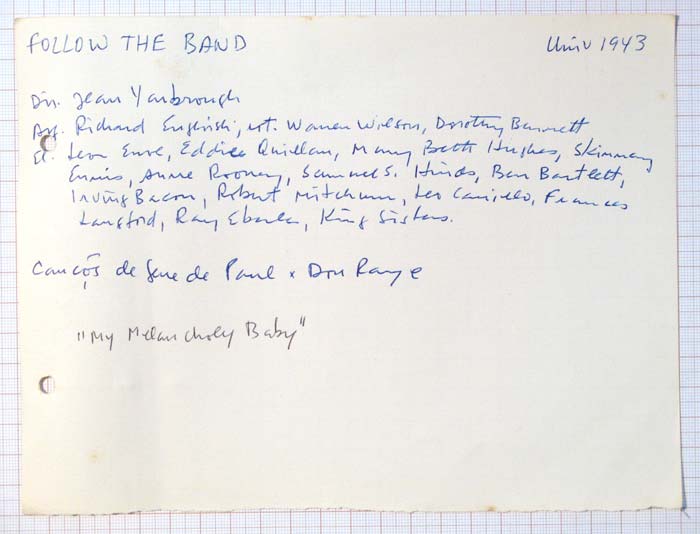 FOLLOW THE BAND Univ 1943
Dir. Jean Yarbrough
Arg. Richard English, int. Warren Wilson, Dorothy Bennett
El. Leon Errol, Eddie Quillan, Mary Beth Hughes, Skinnay
Ennis, Anne Rooney, Samuel S. Hinds, Ben Bartlett,
Irving Bacon, Robert Mitchum, Leo Carrillo, Frances
Langford, Ray Eberle, King Sisters.
Canções de Gene de Paul x Don Raye
"My Melancholy Baby"